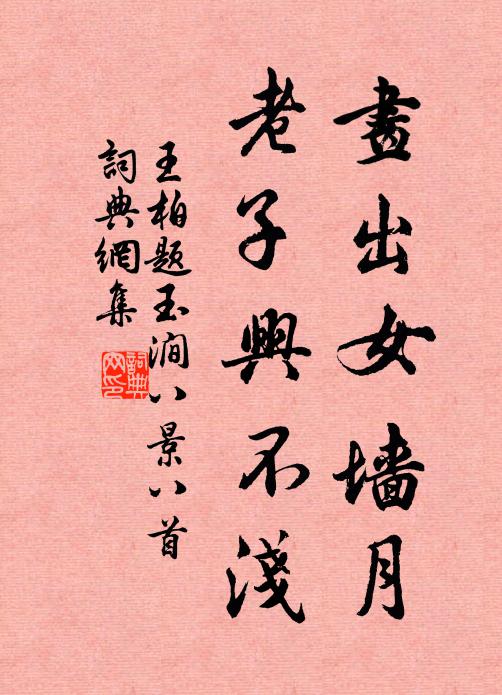 畫出女墻月
老子興不淺
王柏題玉澗八景八首
詞典網集
詞典網印